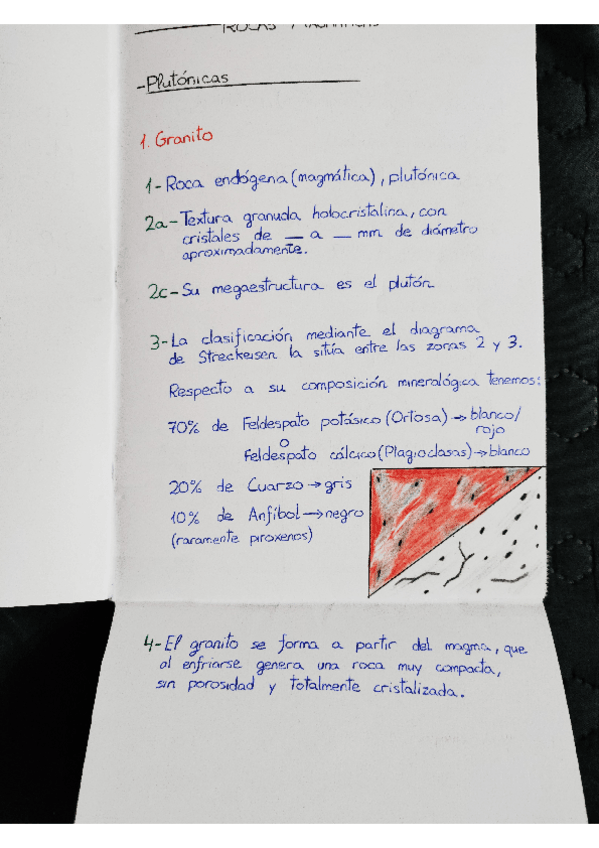 ROCAS MAGMÁTICAS
-Plutónicas
1. Granito
1-Roca endógena (magmática), plutónica
2a-Textura granuda holocristalina, con
cristales de __ a __ mm de diámetro
aproximadamente.
2c-Su megaestructura es el plutón
3-La clasificación mediante el diagrama
de Streckeisen la sitúa entre las zonas 2 y 3.
Respecto a su composición mineralógica tenemos:
70% de Feldespato potásico (Ortosa)→blanco/
rojo
o
Feldespato cálcico (Plagioclasas)→blanco
20% de Cuarzo→gris
10% de Anfíbol→negro
(raramente piroxenos)
4-El granito se forma a partir del magma, que
al enfriarse genera una roca muy compacta,
sin porosidad y totalmente cristalizada.